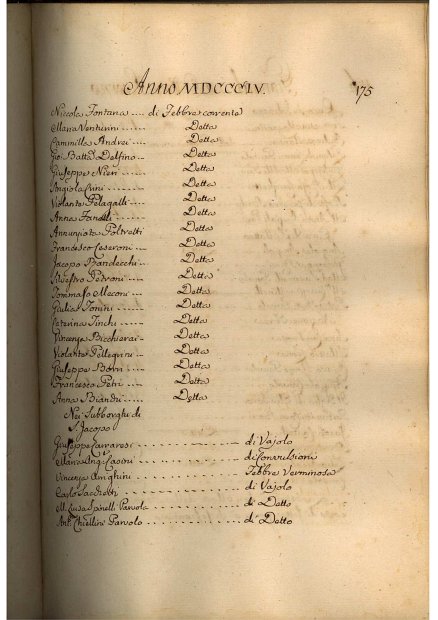 Anno MDCCCIV. 175
Niccola Fontana .... di Febbre corrente
Maria Venturini ..... Detta
Cammilla Andrei .... Detta
Gio: Batta Delfino .. Detta
Giuseppe Nieri ...... Detta
Angiola ....... Detta
Violante Pelagalli .... Detta
Anna Fanelli ...... Detta
Annunziata Poltretti Detta
Francesco Ceseroni .. Detta
Jacopo Bandecchi .. Detta
Silvestro Petroni .... Detta
Tommaso Meconi .. Detta
Giulia Tonini ...... Detta
Caterina Tinchi .... Detta
Vincenzo Bicchierai .. Detta
Violante Pellegrini ... Detta
Giuseppe Borri .... Detta
Francesco Petri .... Detta
Anna Bianchi .... Detta
Nei Subborghi di
S. Jacopo
Giuseppe Carraresi .......... di Vajolo
Maria Ang. Casini .......... di Convulsioni
Vincenzo Arrighini .......... Febbre Verminosa
Carlo Sacchetti .......... di Vajolo
M. Luisa Spinelli Parvola .......... di Detto
Ant. Chiellini Parvolo .......... di Detto